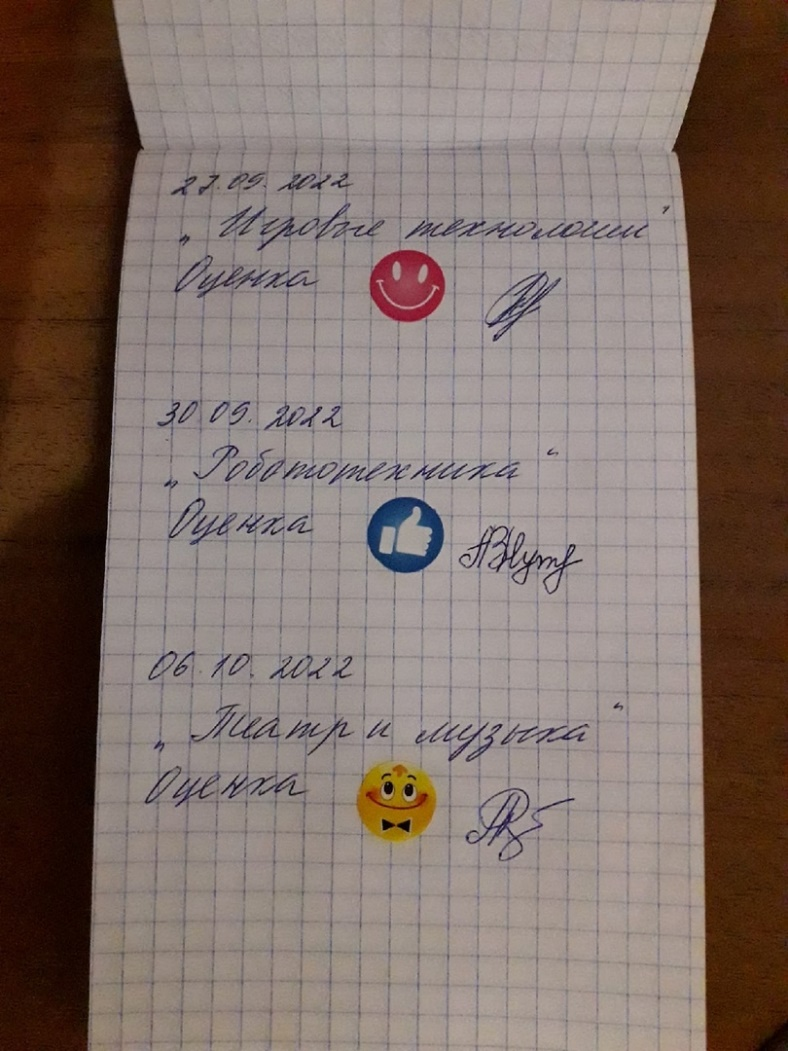 27.09.2022
„Игровые технологии"
Оценка
30.09.2022
„Робототехника"
Оценка
06.10.2022
„Театр и музыка"
Оценка